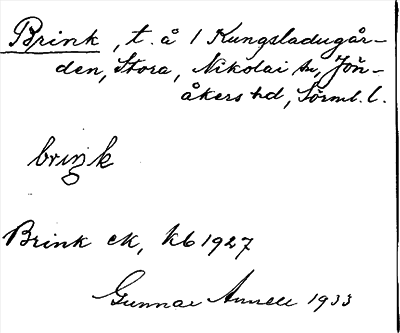 Brink, t. å 1 Kungsladugår-
den, Stora, Nikolai sn, Jön-
åkers hd, Sörml. l.
briŋk
Brink ek, kb 1927
Gunnar Annell 1933